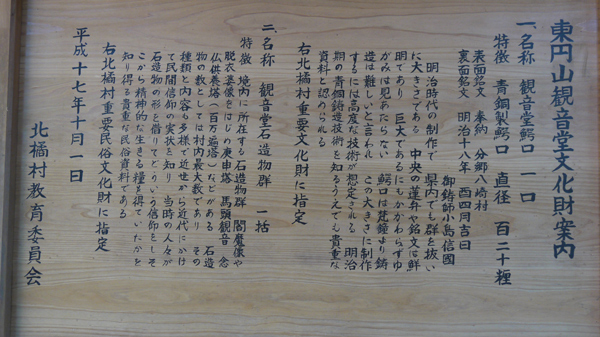 東円山観音堂文化財案内
一、名称 観音堂鰐口 一口
特徴 青銅製鰐口 直径 百二十糎
表面銘文 奉納 分郷八崎村
裏面銘文 明治十八年 酉四月吉日
御鋳師小島信國
明治時代の制作で 県内でも群を抜い
た大きさである 中央の蓮弁や銘文は鮮
明であり 巨大であるにもかかわらずゆ
がみは見あたらない 鰐口は梵鐘より鋳
造は難しいと言われ この大きさに制作
するには高度な技術が想定される 明治
期の青銅鋳造技術を知るうえでも貴重な
資料と認められる
右北橘村重要文化財に指定
二、名称 観音堂石造物群 一括
特徴 境内に所在する石造物群 閻魔像や
脱衣婆像をはじめ庚申塔 馬頭観音 念
仏供養塔(百万遍塔)などがある 石造
物の数としては村内最大数であり その
種類と内容も多様で近世から近代にかけ
て民間信仰の実状を知り 当時の人々が
石造物の形を借りてどういう信仰をしそ
こから精神的な生きる糧を得ていたかを
知り得る貴重な民俗資料である
右北橘村重要民俗文化財に指定
平成十七年十月一日
北橘村教育委員会